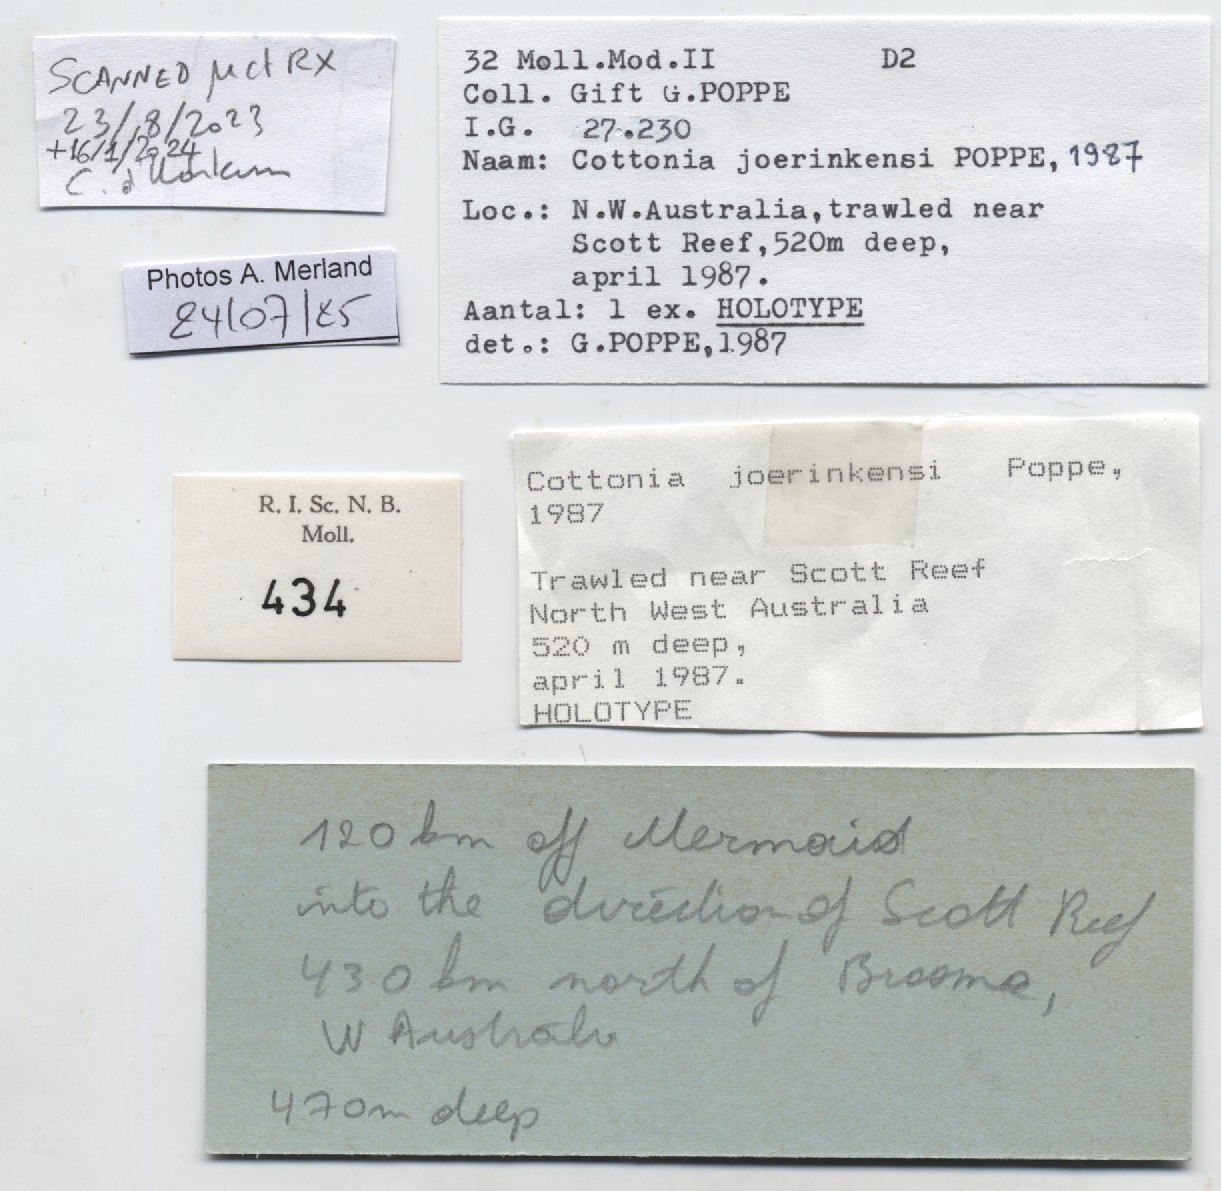 SCANNED µct RX
23/8/2023
+16/1/2024
C.
Photos A. Merland
24/07/25
32 Moll.Mod.II D2
Coll. Gift G.POPPE
I.G. 27.230
Naam: Cottonia joerinkensi POPPE, 1987
Loc.: N.W.Australia,trawled near
Scott Reef,520m deep,
april 1987.
Aantal: 1 ex. HOLOTYPE
det.: G.POPPE,1987
R. I. Sc. N. B.
Moll.
434
Cottonia joerinkensi Poppe,
1987
Trawled near Scott Reef
North West Australia
520 m deep,
april 1987.
HOLOTYPE
120 km off Mermaid
into the direction of Scott Reef
430 km north of Broome,
W Australia
470m deep